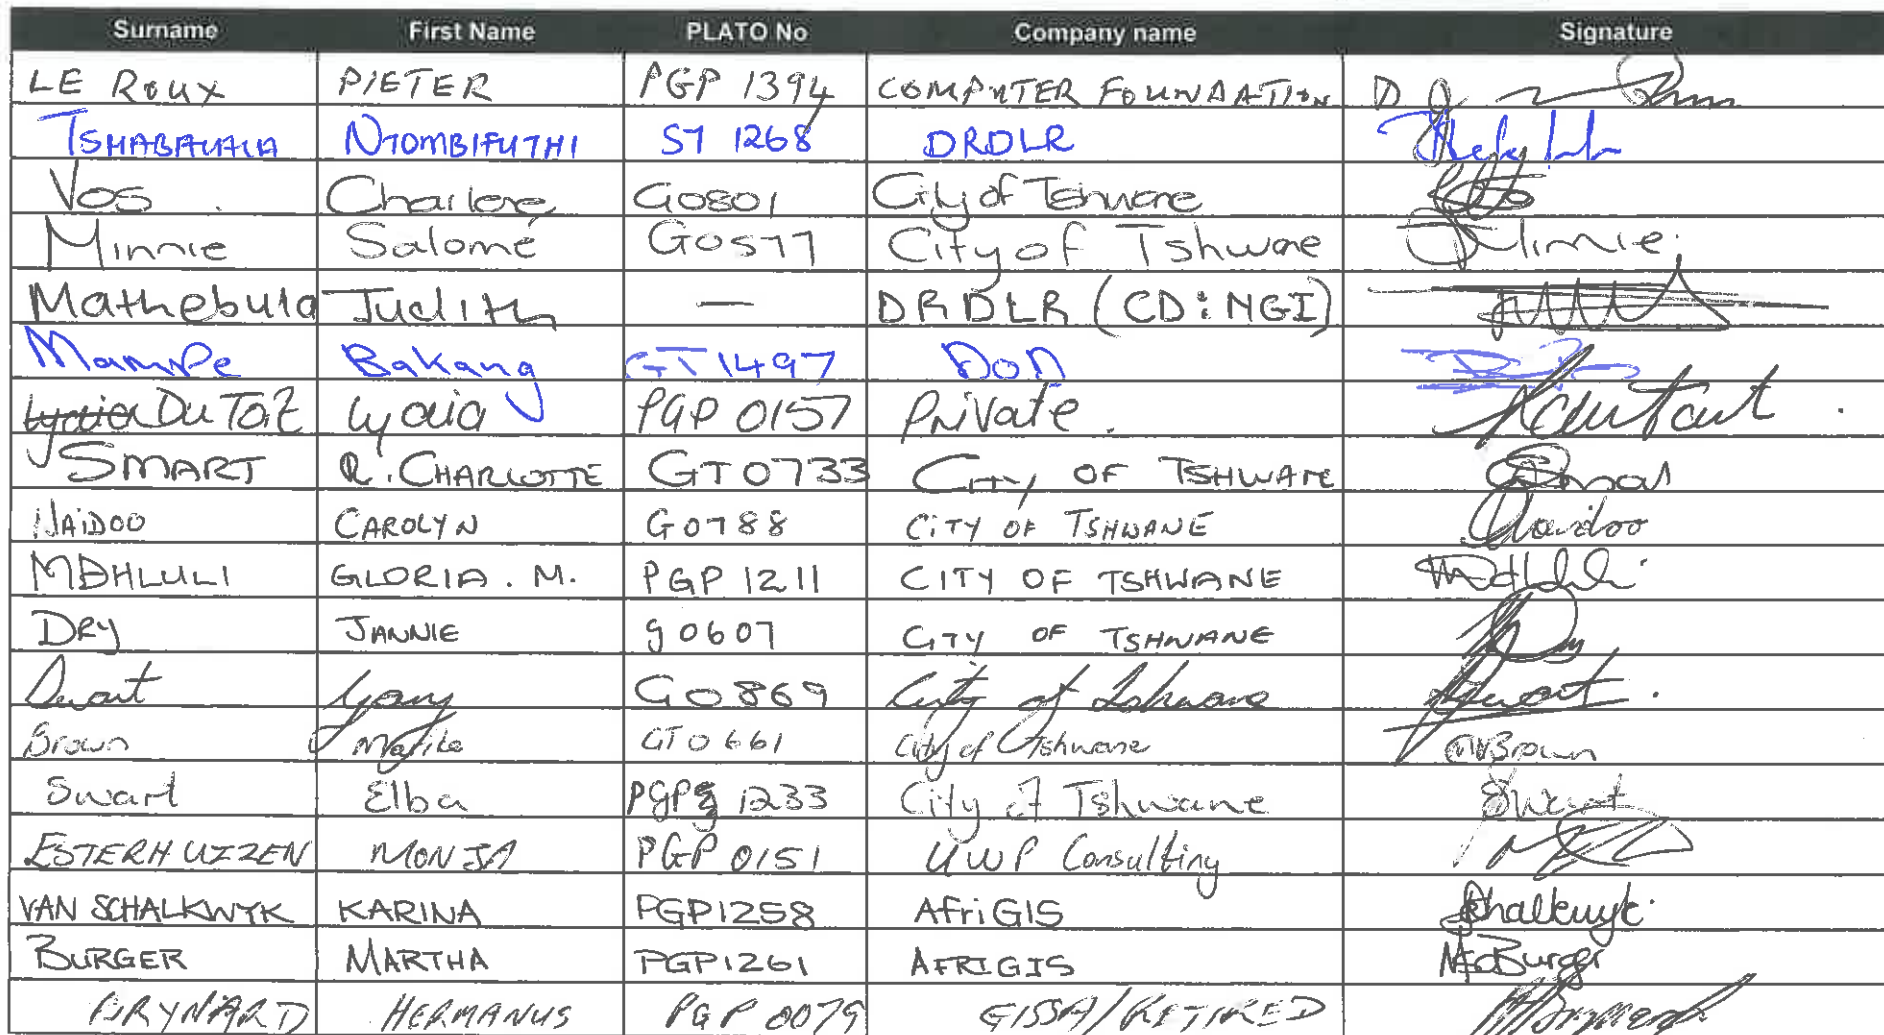 Surname First Name PLATO No Company name Signature
LE ROUX PIETER PGP 1394 COMPUTER FOUNDATION
TSHABALALA NTOMBIFUTHI ST 1268 DRDLR
Vos Charlene G0801 City of Tshwane
Minnie Salomé G0577 City of Tshwane Minnie
Mathebula Judith — DRDLR (CD: NGI)
Mampe Bakang GT 1497
Lydia Du Toit Lydia PGP 0157 Private
SMART R. CHARLOTTE GT0733 CITY OF TSHWANE
NAIDOO CAROLYN G0788 CITY OF TSHWANE Naidoo
MDHLULI GLORIA. M. PGP 1211 CITY OF TSHWANE Mdhluli
DRY JANNIE g0607 CITY OF TSHWANE
Gary G0869 City of Tshwane
Brown GT0661 City of Tshwane Brown
Swart Elba PGP 1233 City of Tshwane Swart
ESTERHUIZEN MONJA PGP 0151 UWP Consulting
VAN SCHALKWYK KARINA PGP1258 AfriGIS Schalkwyk
BURGER MARTHA PGP1261 AFRIGIS Burger
BRYNARD HERMANUS PGP 0079 GISSA/RETIRED